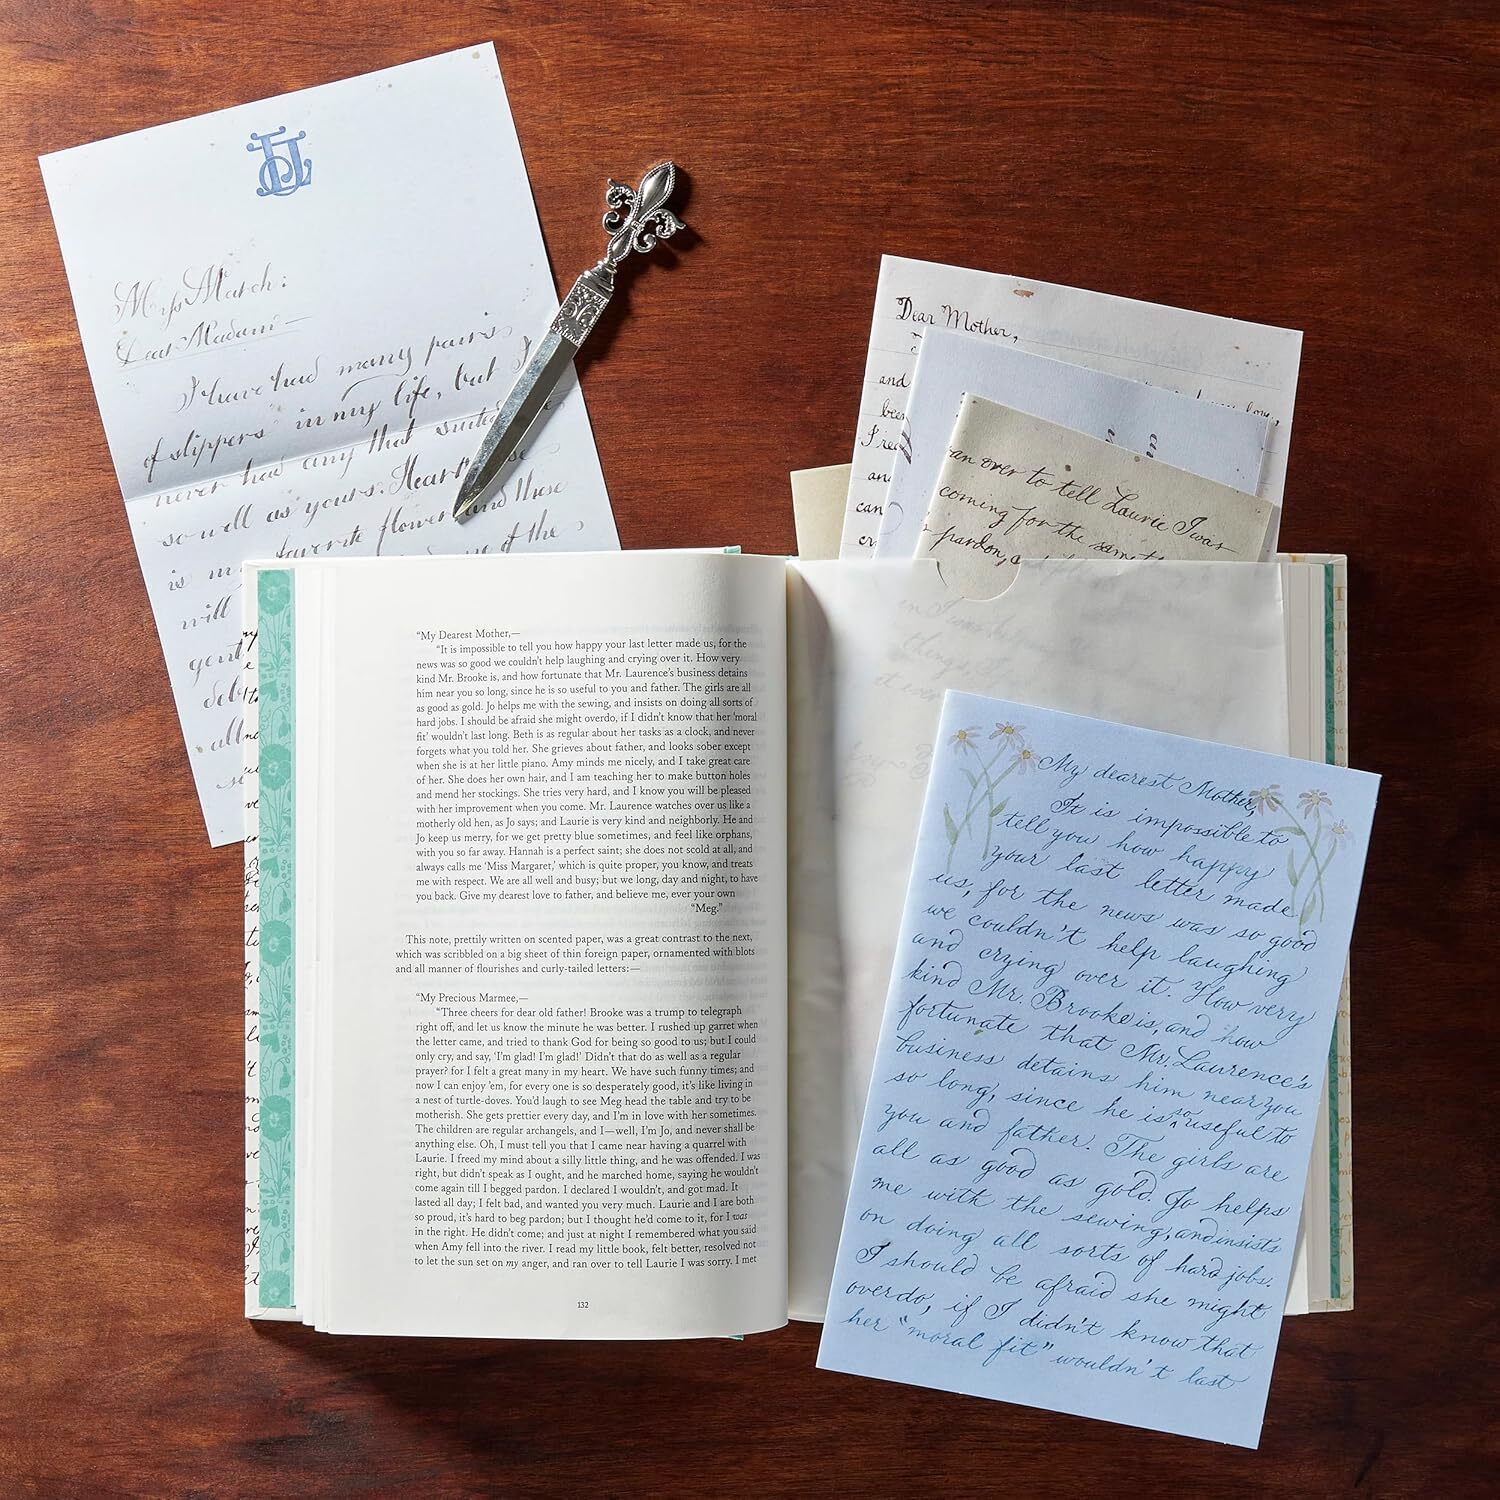 Miss March:
Dear Madam—
I have had many pairs
of slippers in my life, but I
never had any that suited me
so well as yours. Heart's
favorite flower and these
is my of the
will
gent
debt
all
Dear Mother,
and
been
I rea
and
can
ran over to tell Laurie I was
coming for the same
pardon,
“My Dearest Mother,—
“It is impossible to tell you how happy your last letter made us, for the
news was so good we couldn't help laughing and crying over it. How very
kind Mr. Brooke is, and how fortunate that Mr. Laurence's business detains
him near you so long, since he is so useful to you and father. The girls are all
as good as gold. Jo helps me with the sewing, and insists on doing all sorts of
hard jobs. I should be afraid she might overdo, if I didn't know that her ‘moral
fit’ wouldn't last long. Beth is as regular about her tasks as a clock, and never
forgets what you told her. She grieves about father, and looks sober except
when she is at her little piano. Amy minds me nicely, and I take great care
of her. She does her own hair, and I am teaching her to make button holes
and mend her stockings. She tries very hard, and I know you will be pleased
with her improvement when you come. Mr. Laurence watches over us like a
motherly old hen, as Jo says; and Laurie is very kind and neighborly. He and
Jo keep us merry, for we get pretty blue sometimes, and feel like orphans,
with you so far away. Hannah is a perfect saint; she does not scold at all, and
always calls me ‘Miss Margaret,’ which is quite proper, you know, and treats
me with respect. We are all well and busy; but we long, day and night, to have
you back. Give my dearest love to father, and believe me, ever your own
“Meg.”
This note, prettily written on scented paper, was a great contrast to the next,
which was scribbled on a big sheet of thin foreign paper, ornamented with blots
and all manner of flourishes and curly-tailed letters:—
“My Precious Marmee,—
“Three cheers for dear old father! Brooke was a trump to telegraph
right off, and let us know the minute he was better. I rushed up garret when
the letter came, and tried to thank God for being so good to us; but I could
only cry, and say, ‘I'm glad! I'm glad!’ Didn't that do as well as a regular
prayer? for I felt a great many in my heart. We have such funny times; and
now I can enjoy 'em, for every one is so desperately good, it's like living in
a nest of turtle-doves. You'd laugh to see Meg head the table and try to be
motherish. She gets prettier every day, and I'm in love with her sometimes.
The children are regular archangels, and I—well, I'm Jo, and never shall be
anything else. Oh, I must tell you that I came near having a quarrel with
Laurie. I freed my mind about a silly little thing, and he was offended. I was
right, but didn't speak as I ought, and he marched home, saying he wouldn't
come again till I begged pardon. I declared I wouldn't, and got mad. It
lasted all day; I felt bad, and wanted you very much. Laurie and I are both
so proud, it's hard to beg pardon; but I thought he'd come to it, for I was
in the right. He didn't come; and just at night I remembered what you said
when Amy fell into the river. I read my little book, felt better, resolved not
to let the sun set on my anger, and ran over to tell Laurie I was sorry. I met
132
My dearest Mother,
It is impossible to
tell you how happy
your last letter made
us, for the news was so good
we couldn't help laughing
and crying over it. How very
kind Mr. Brooke is, and how
fortunate that Mr. Laurence's
business detains him near you
so long, since he is so useful to
you and father. The girls are
all as good as gold. Jo helps
me with the sewing, and insists
on doing all sorts of hard jobs.
I should be afraid she might
overdo, if I didn't know that
her "moral fit" wouldn't last